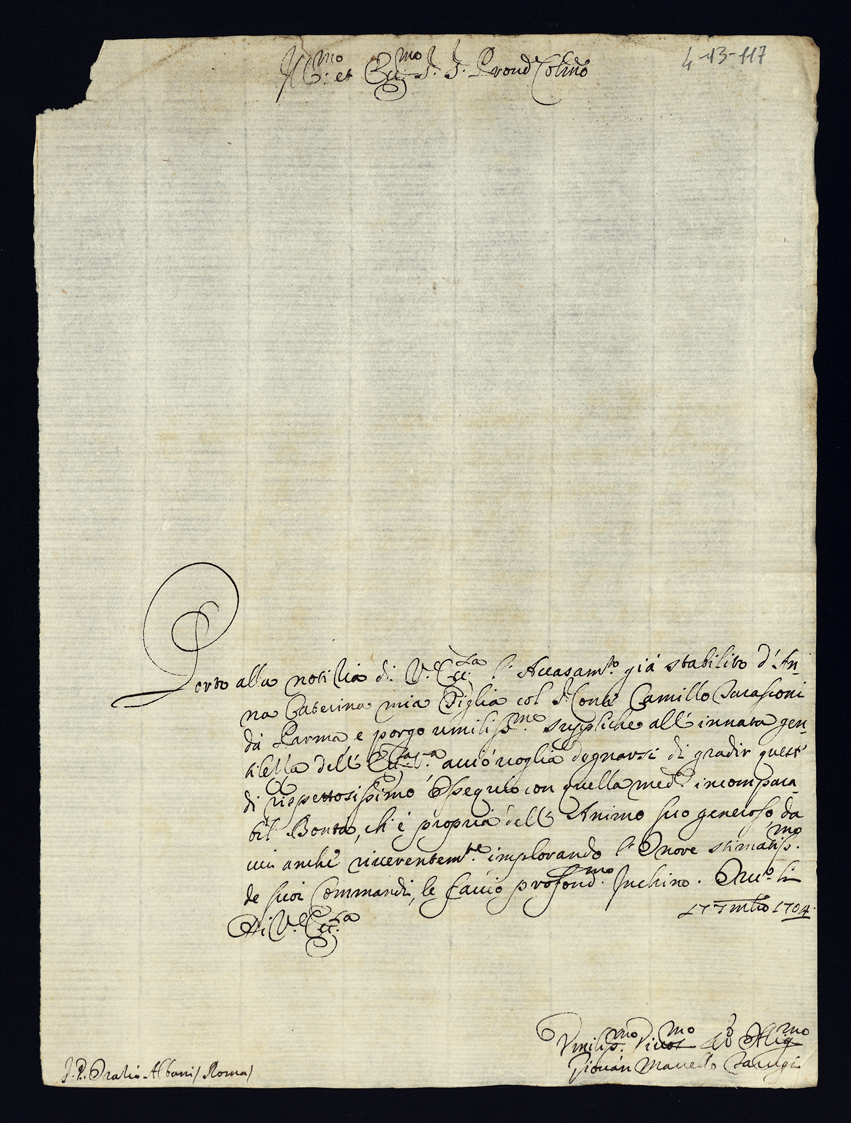 Ill:mo et Ecc:mo S. S. Prond Colmo
4-13-117
Porto alla notitia di V. Ecc:za l' Accasam:to già stabilito d'An-
na Caterina mia Figlia col S Conte Camillo
da Parma e porgo umiliss:me suppliche all' innata gen-
tilezza dell' Ecc:za V:a acciò voglia degnarsi di gradir quest'
di rispettosissimo Ossequio con quella med:a incompara-
bil Bontà, ch' è propria dell' Animo suo generoso da
cui anche riverentem:te implorando l' Onore stimatiss:mo
de suoi Commandi, le faccio profond:mo Inchino. li
17 1704.
Di V. Ecc:za
Umiliss:mo Divot:mo ed Oblig:mo
Giovan
S. P. Oratio Albani / Roma /